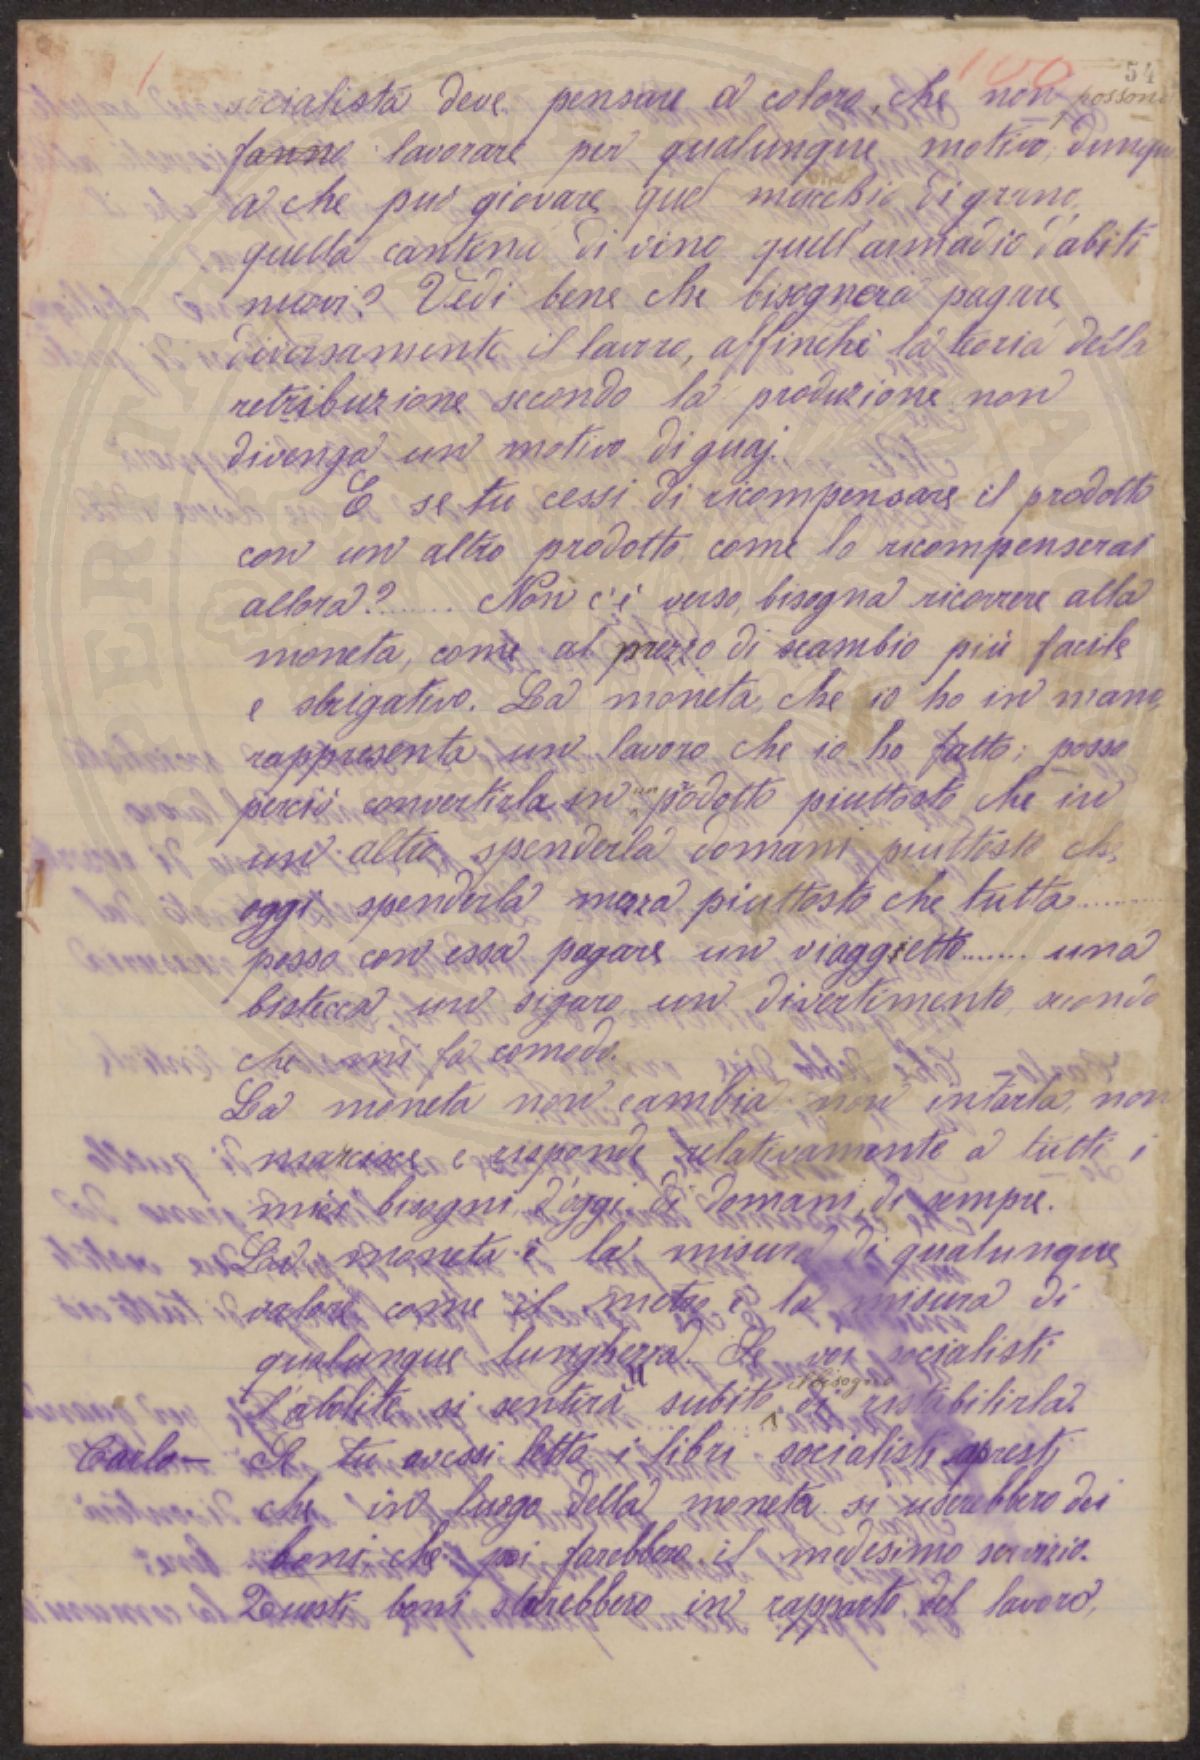 100
54
socialista deve pensare a coloro, che non possono
fanno lavorare per qualunque motivo; dunque
a che può giovare quel mucchio di grano,
quella cantina di vino quell'armadio d'abiti
nuovi? Vedi bene che bisognerà pagare
diversamente il lavoro, affinchè la teoria della
retribuzione secondo la produzione non
divenga un motivo di guaj.
E se tu cessi di ricompensare il prodotto
con un altro prodotto, come lo ricompenserai
allora?....... Non c'è verso, bisogna ricorrere alla
moneta, come al mezzo di scambio più facile
e sbrigativo. La moneta, che io ho in mano,
rappresenta un lavoro che io ho fatto; posso
perciò convertirla in un prodotto piuttosto che in
un altro spenderla domani piuttosto che
oggi spenderla mezza piuttosto che tutta........
posso con essa pagare un viaggietto....... una
bistecca un sigaro un divertimento, secondo
che mi fa comodo.
La moneta non cambia non intarla, non
marcisce e risponde relativamente a tutti i
miei bisogni, d'oggi di domani, di sempre.
La moneta è la misura di qualunque
valore come il metro è la misura di
qualunque lunghezza. Se voi socialisti
l'abolite si sentirà subito il bisogno di ristabilirla.
Carlo— Se tu avessi letto i libri socialisti sapresti
che in luogo della moneta si userebbero dei
boni che poi farebbero il medesimo servizio.
Questi boni starebbero in rapporto del lavoro,